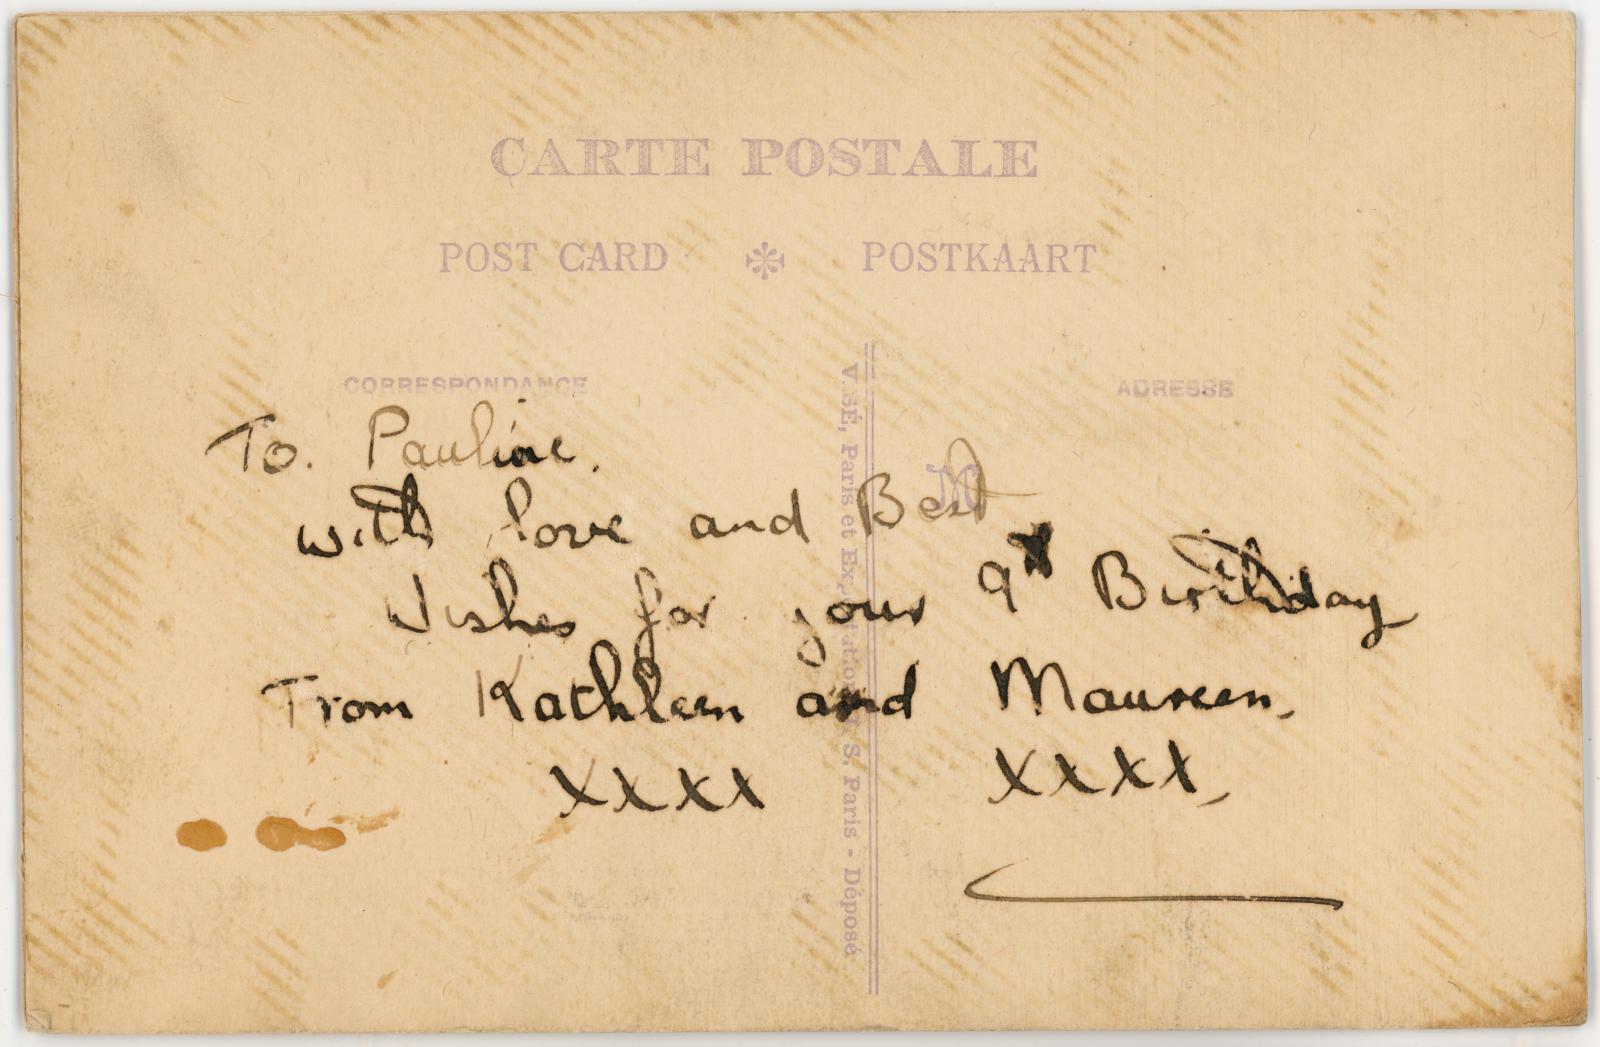 CARTE POSTALE
POST CARD ✻ POSTKAART
CORRESPONDANCE
ADRESSE
To. Pauline.
with love and Best
Wishes for your 9th Birthday
From Kathleen and Maureen.
xxxx xxxx,
VISÉ, Paris et Exportation S. Paris - Déposé
M